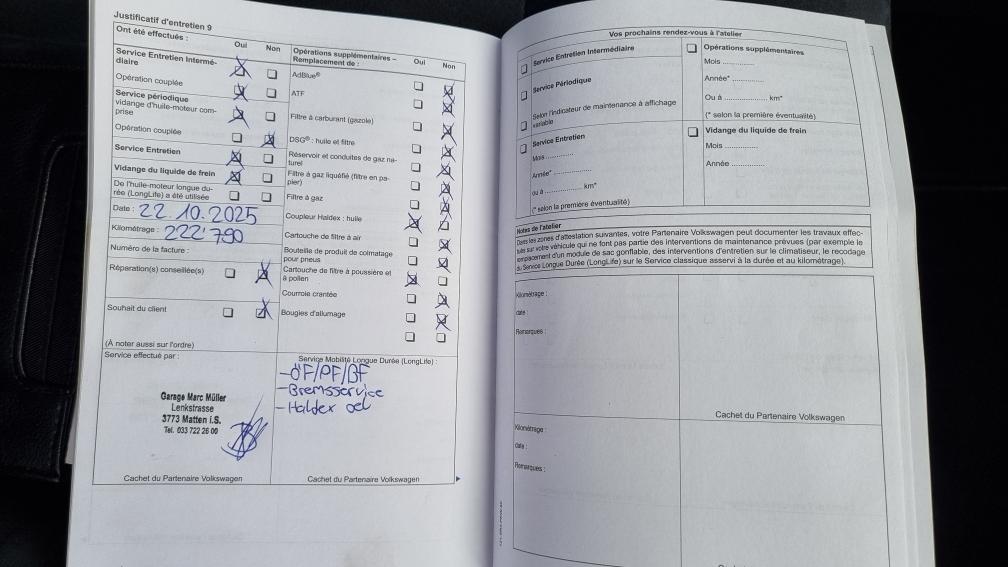 Justificatif d'entretien 9
Ont été effectués :
Oui
Non
Service Entretien Intermé-
diaire
Opération couplée
Service périodique
vidange d'huile-moteur com-
prise
Opération couplée
Service Entretien
Vidange du liquide de frein
De l'huile-moteur longue du-
rée (LongLife) a été utilisée
Date : 22.10.2025
Kilométrage : 222'790
Numéro de la facture :
Réparation(s) conseillée(s)
Souhait du client
(À noter aussi sur l'ordre)
Opérations supplémentaires –
Remplacement de :
Oui
Non
AdBlue®
ATF
Filtre à carburant (gazole)
DSG® : huile et filtre
Réservoir et conduites de gaz na-
turel
Filtre à gaz liquéfié (filtre en pa-
pier)
Filtre à gaz
Coupleur Haldex : huile
Cartouche de filtre à air
Bouteille de produit de colmatage
pour pneus
Cartouche de filtre à poussière et
à pollen
Courroie crantée
Bougies d'allumage
Service effectué par :
Garage Marc Müller
Lenkstrasse
3773 Matten i.S.
Tel. 033 722 26 00
Cachet du Partenaire Volkswagen
Service Mobilité Longue Durée (LongLife) :
- öF/PF/BF
- Bremsservice
- Haldex oel
Cachet du Partenaire Volkswagen
Vos prochains rendez-vous à l'atelier
Service Entretien Intermédiaire
Service Périodique
Selon l'indicateur de maintenance à affichage
variable
Service Entretien
Mois ............
Année* ............
ou à ............ km*
(* selon la première éventualité)
Opérations supplémentaires
Mois ............
Année* ............
Ou à ............ km*
(* selon la première éventualité)
Vidange du liquide de frein
Mois ............
Année ............
Notes de l'atelier
Dans les zones d'attestation suivantes, votre Partenaire Volkswagen peut documenter les travaux effec-
tués sur votre véhicule qui ne font pas partie des interventions de maintenance prévues (par exemple le
remplacement d'un module de sac gonflable, des interventions d'entretien sur le climatiseur, le recodage
du Service Longue Durée (LongLife) sur le Service classique asservi à la durée et au kilométrage).
Kilométrage :
date :
Remarques :
Cachet du Partenaire Volkswagen
Kilométrage :
date :
Remarques :